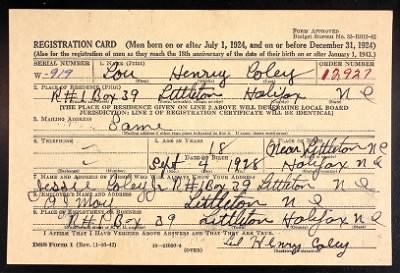 FORM APPROVED
REGISTRATION CARD (Men born on or after July 1, 1924, and on or before December 31, 1924)
(Also for the registration of men as they reach the 18th anniversary of the date of their birth on or after January 1, 1943.)
SERIAL NUMBER 1. NAME (Print) ORDER NUMBER
W-919 Lou Henry Coley 12,927
2. PLACE OF RESIDENCE (Print)
R#1 Box 39 Littleton Halifax N C
[THE PLACE OF RESIDENCE GIVEN ON LINE 2 ABOVE WILL DETERMINE LOCAL BOARD
JURISDICTION; LINE 2 OF REGISTRATION CERTIFICATE WILL BE IDENTICAL]
3. MAILING ADDRESS
Same
[Mailing address if other than place indicated on line 2. If same, insert word same]
4. TELEPHONE 5. AGE IN YEARS
18 Near Littleton N C
DATE OF BIRTH
Sept 4 1928 Halifax N C
7. NAME AND ADDRESS OF PERSON WHO WILL ALWAYS KNOW YOUR ADDRESS
Jessie Coley R#1 Box 39 Littleton N C
8. EMPLOYER'S NAME AND ADDRESS
Littleton N C
9. PLACE OF EMPLOYMENT OR BUSINESS
R#1 Box 39 Littleton Halifax N C
I AFFIRM THAT I HAVE VERIFIED ABOVE ANSWERS AND THAT THEY ARE TRUE.
DSS Form 1 (OVER) Henry Coley